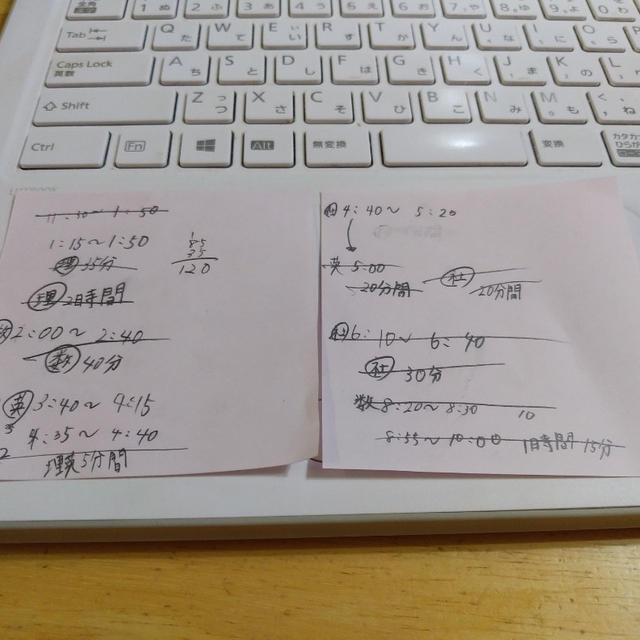 Tab
Q た W て E い R す T か Y ん U な I に O ら
Caps Lock 英数 A ち S と D し F は G き H く J ま K の L り
Shift Z つ X さ C そ V ひ B こ N み M も ね
Ctrl Fn Alt 無変換 変換 カタカナ ひらがな
1:15〜1:50
理 35分
85
35
120
理 2時間
2:00〜2:40
数 40分
英 3:40〜4:15
4:35〜4:40
5分間
4:40〜5:20
英 5:00
20分間
社
20分間
6:10〜6:40
社 30分
数 8:20〜8:30 10
8:55〜10:00 1時間15分